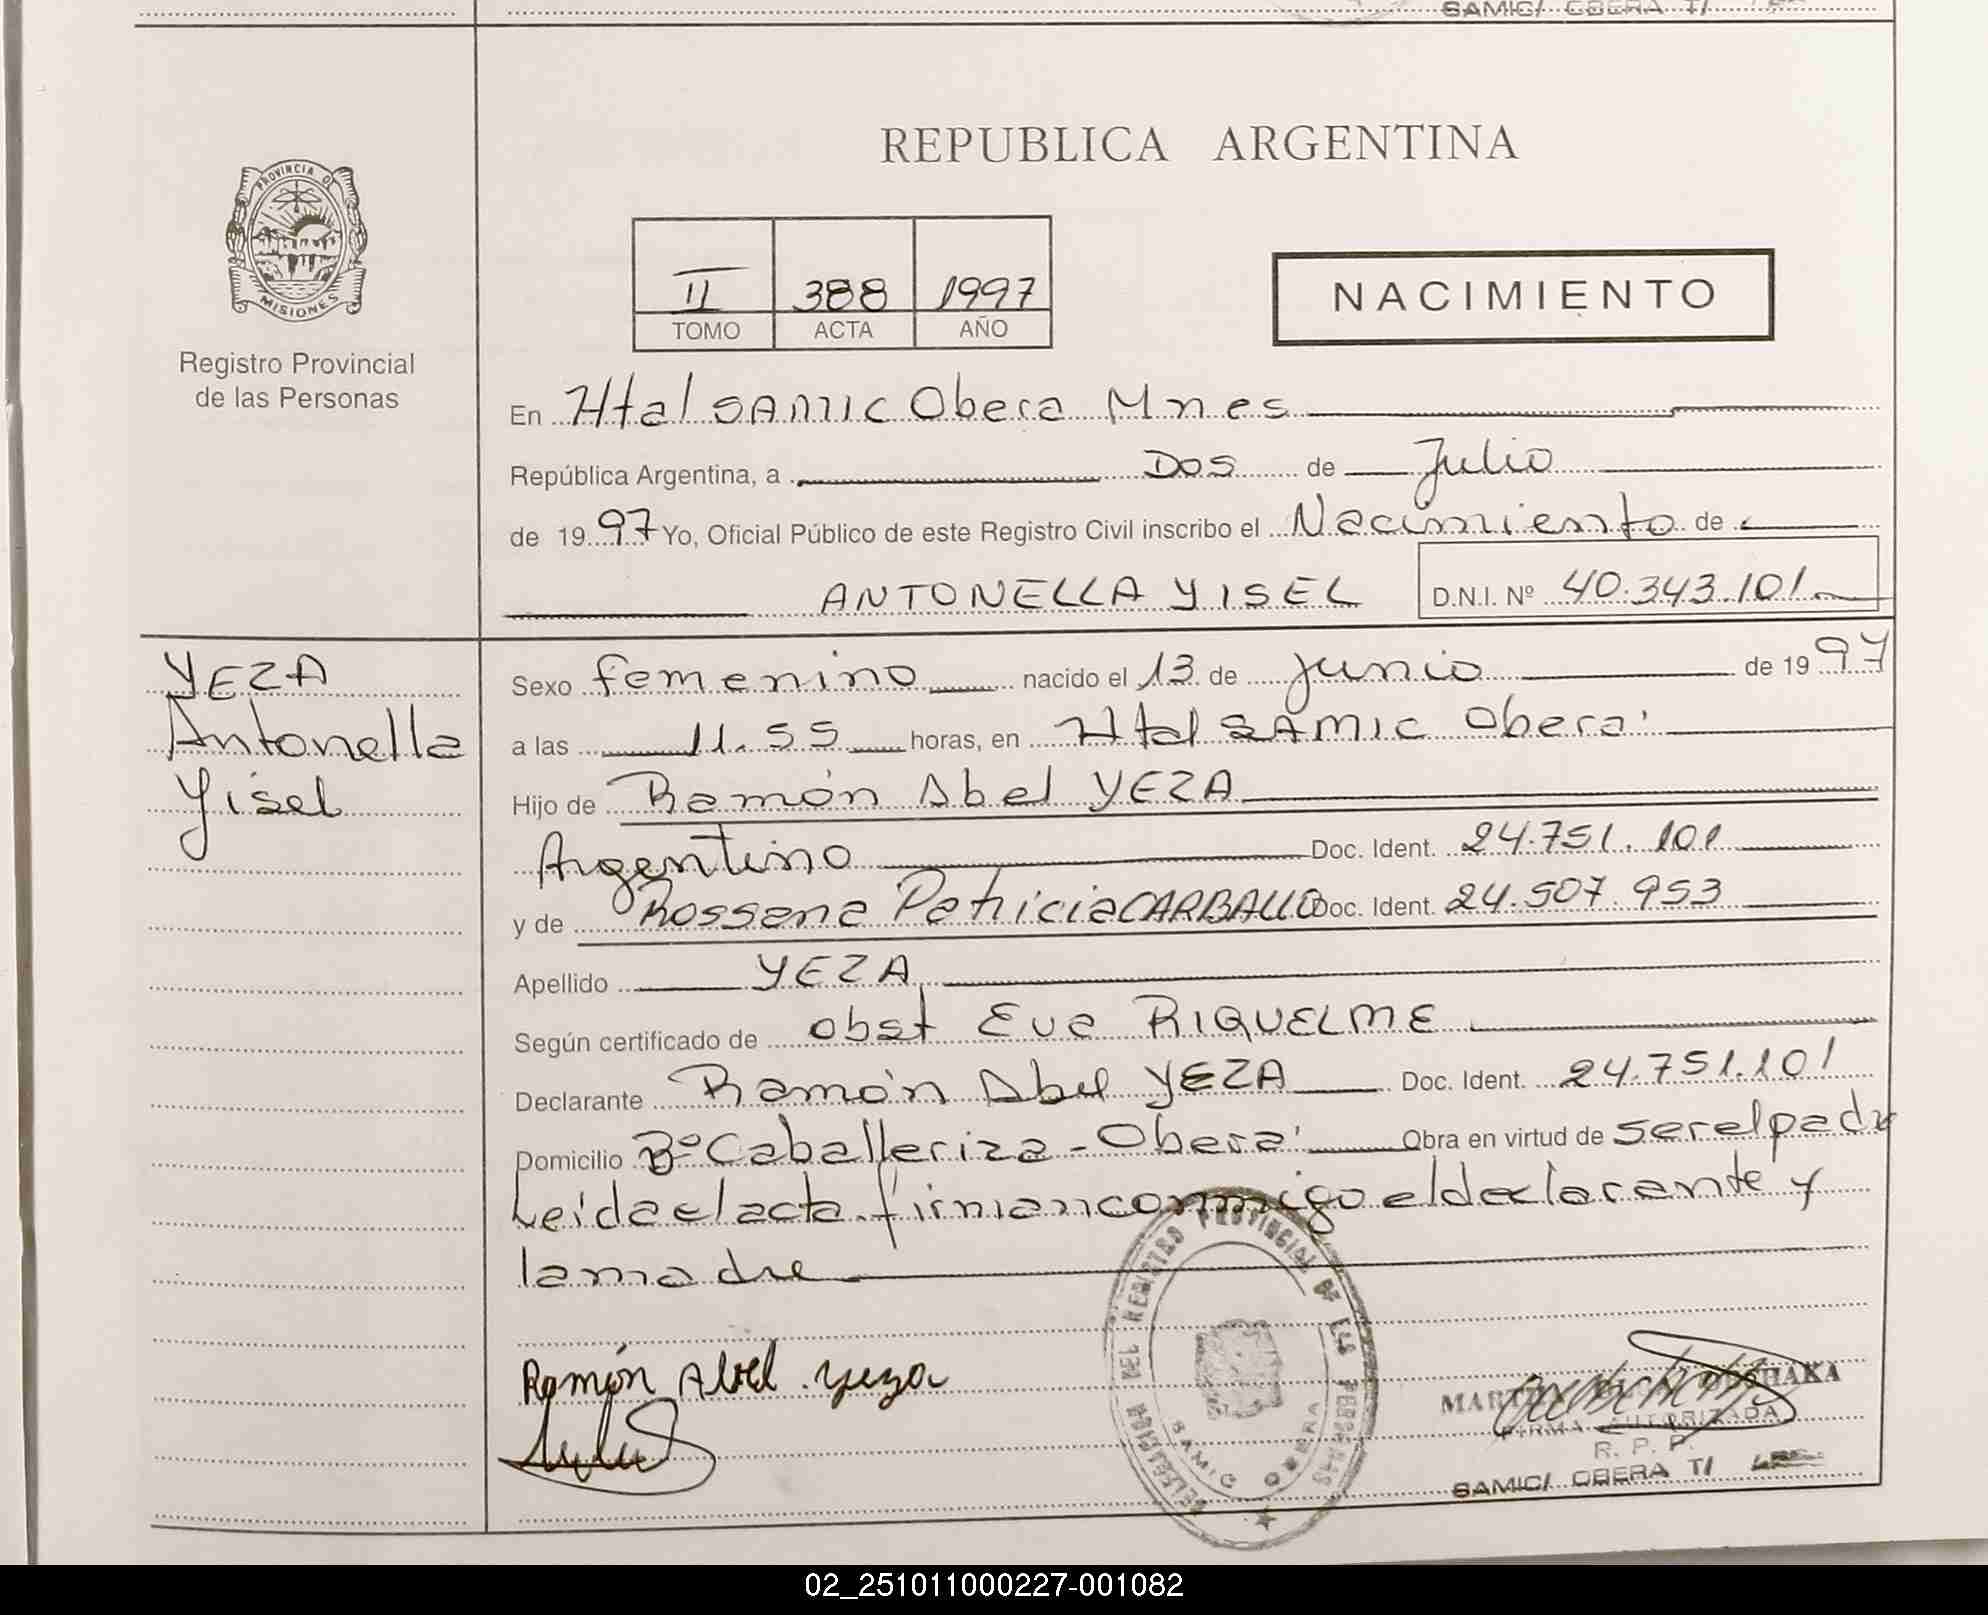 SAMIC/ OBERA T/
PROVINCIA DE
MISIONES
Registro Provincial
de las Personas
REPUBLICA ARGENTINA
II 388 1997
TOMO ACTA AÑO
NACIMIENTO
En Htal SAMIC Obera Mnes
República Argentina, a Dos de Julio
de 1997 Yo, Oficial Público de este Registro Civil inscribo el Nacimiento de
ANTONELLA YISEL D.N.I. Nº 40.343.101
YEZA
Antonella
Yisel
Sexo femenino nacido el 13 de junio de 1997
a las 11.55 horas, en Htal SAMIC Oberá
Hijo de Ramón Abel YEZA
Argentino Doc. Ident. 24.751.101
y de Rossana Patricia CARBALLO Doc. Ident. 24.507.953
Apellido YEZA
Según certificado de obst Eva RIQUELME
Declarante Ramón Abel YEZA Doc. Ident. 24.751.101
Domicilio Bº Caballeriza - Oberá Obra en virtud de ser el padre
Leida el acta firman conmigo el declarante y
la madre
Ramón Abel Yeza
DELEGACION DEL REGISTRO PROVINCIAL DE LAS PERSONAS
SAMIC OBERA
FIRMA AUTORIZADA
R. P. P.
SAMIC/ OBERA T/
02_251011000227-001082